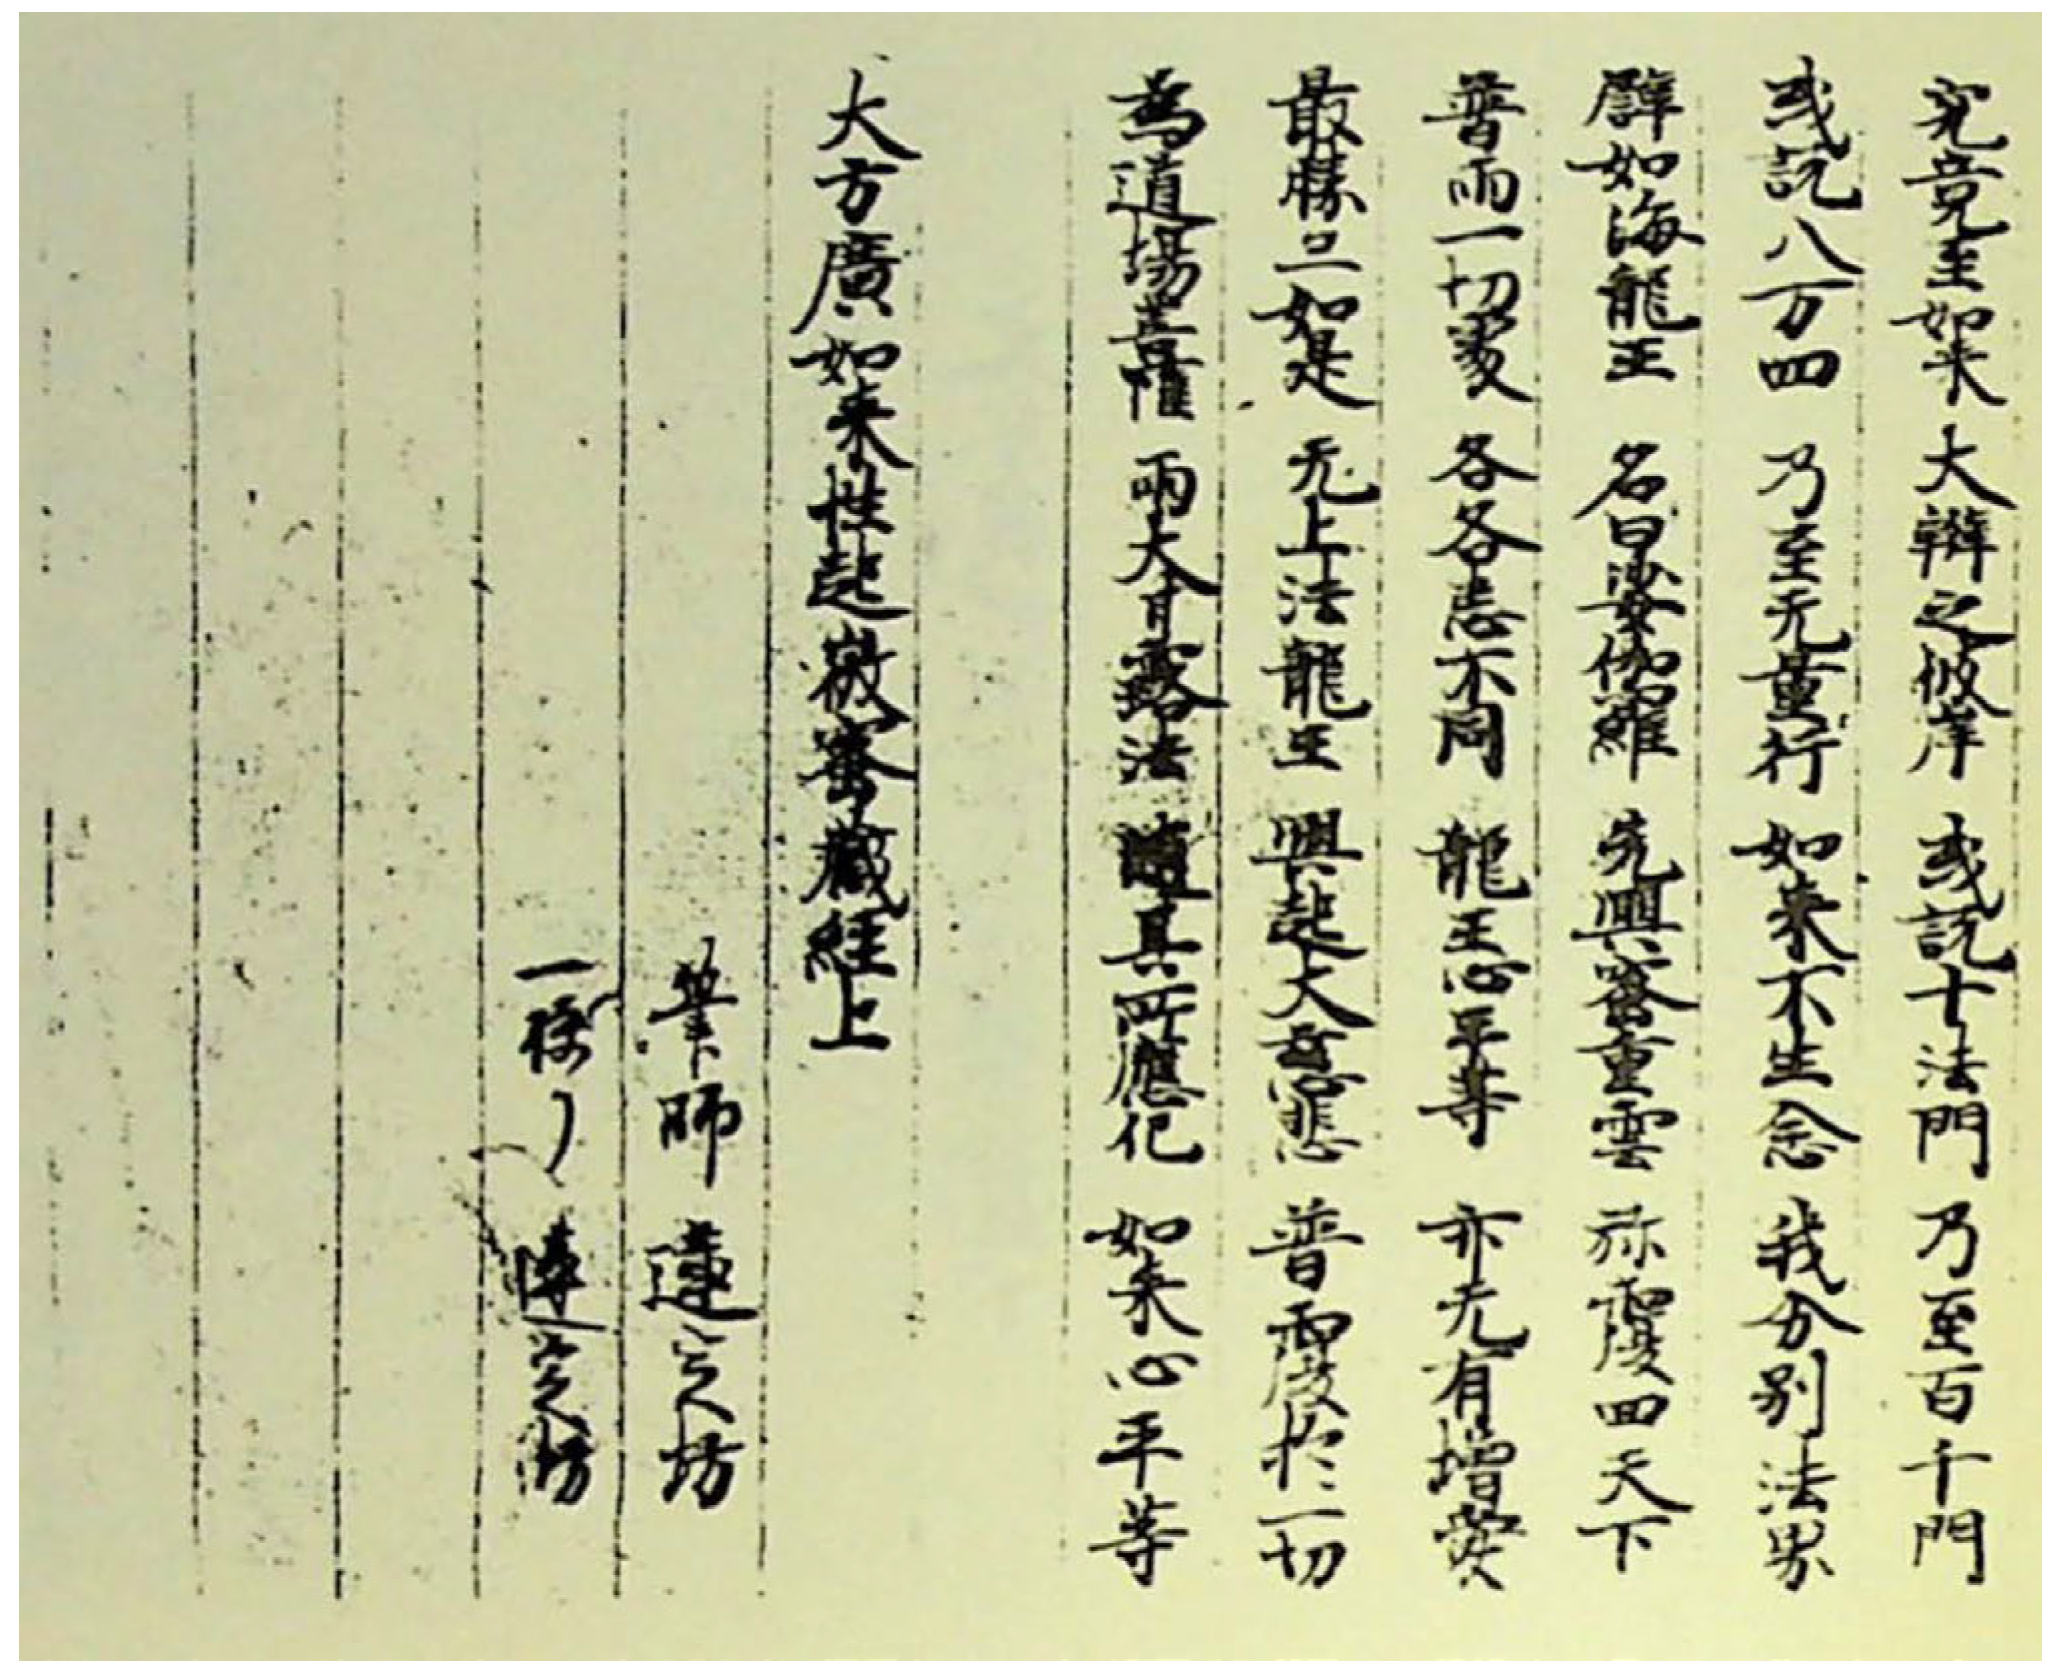 究竟至如来 大辯之彼岸 或説十法門 乃至百千門
或説八万四 乃至无量行 如来不生念 我分別法界
譬如海龍王 名曰娑伽羅 先興密重雲 弥覆四天下
普雨一切處 各各悉不同 龍王心平等 亦无有増愛
最勝亦如是 无上法龍王 興起大慈悲 普覆於一切
為道場菩薩 雨大甘露法 随其所應化 如来心平等
大方廣如来性起微密藏経上
筆師 蓮定坊
一挍了 蓮定坊